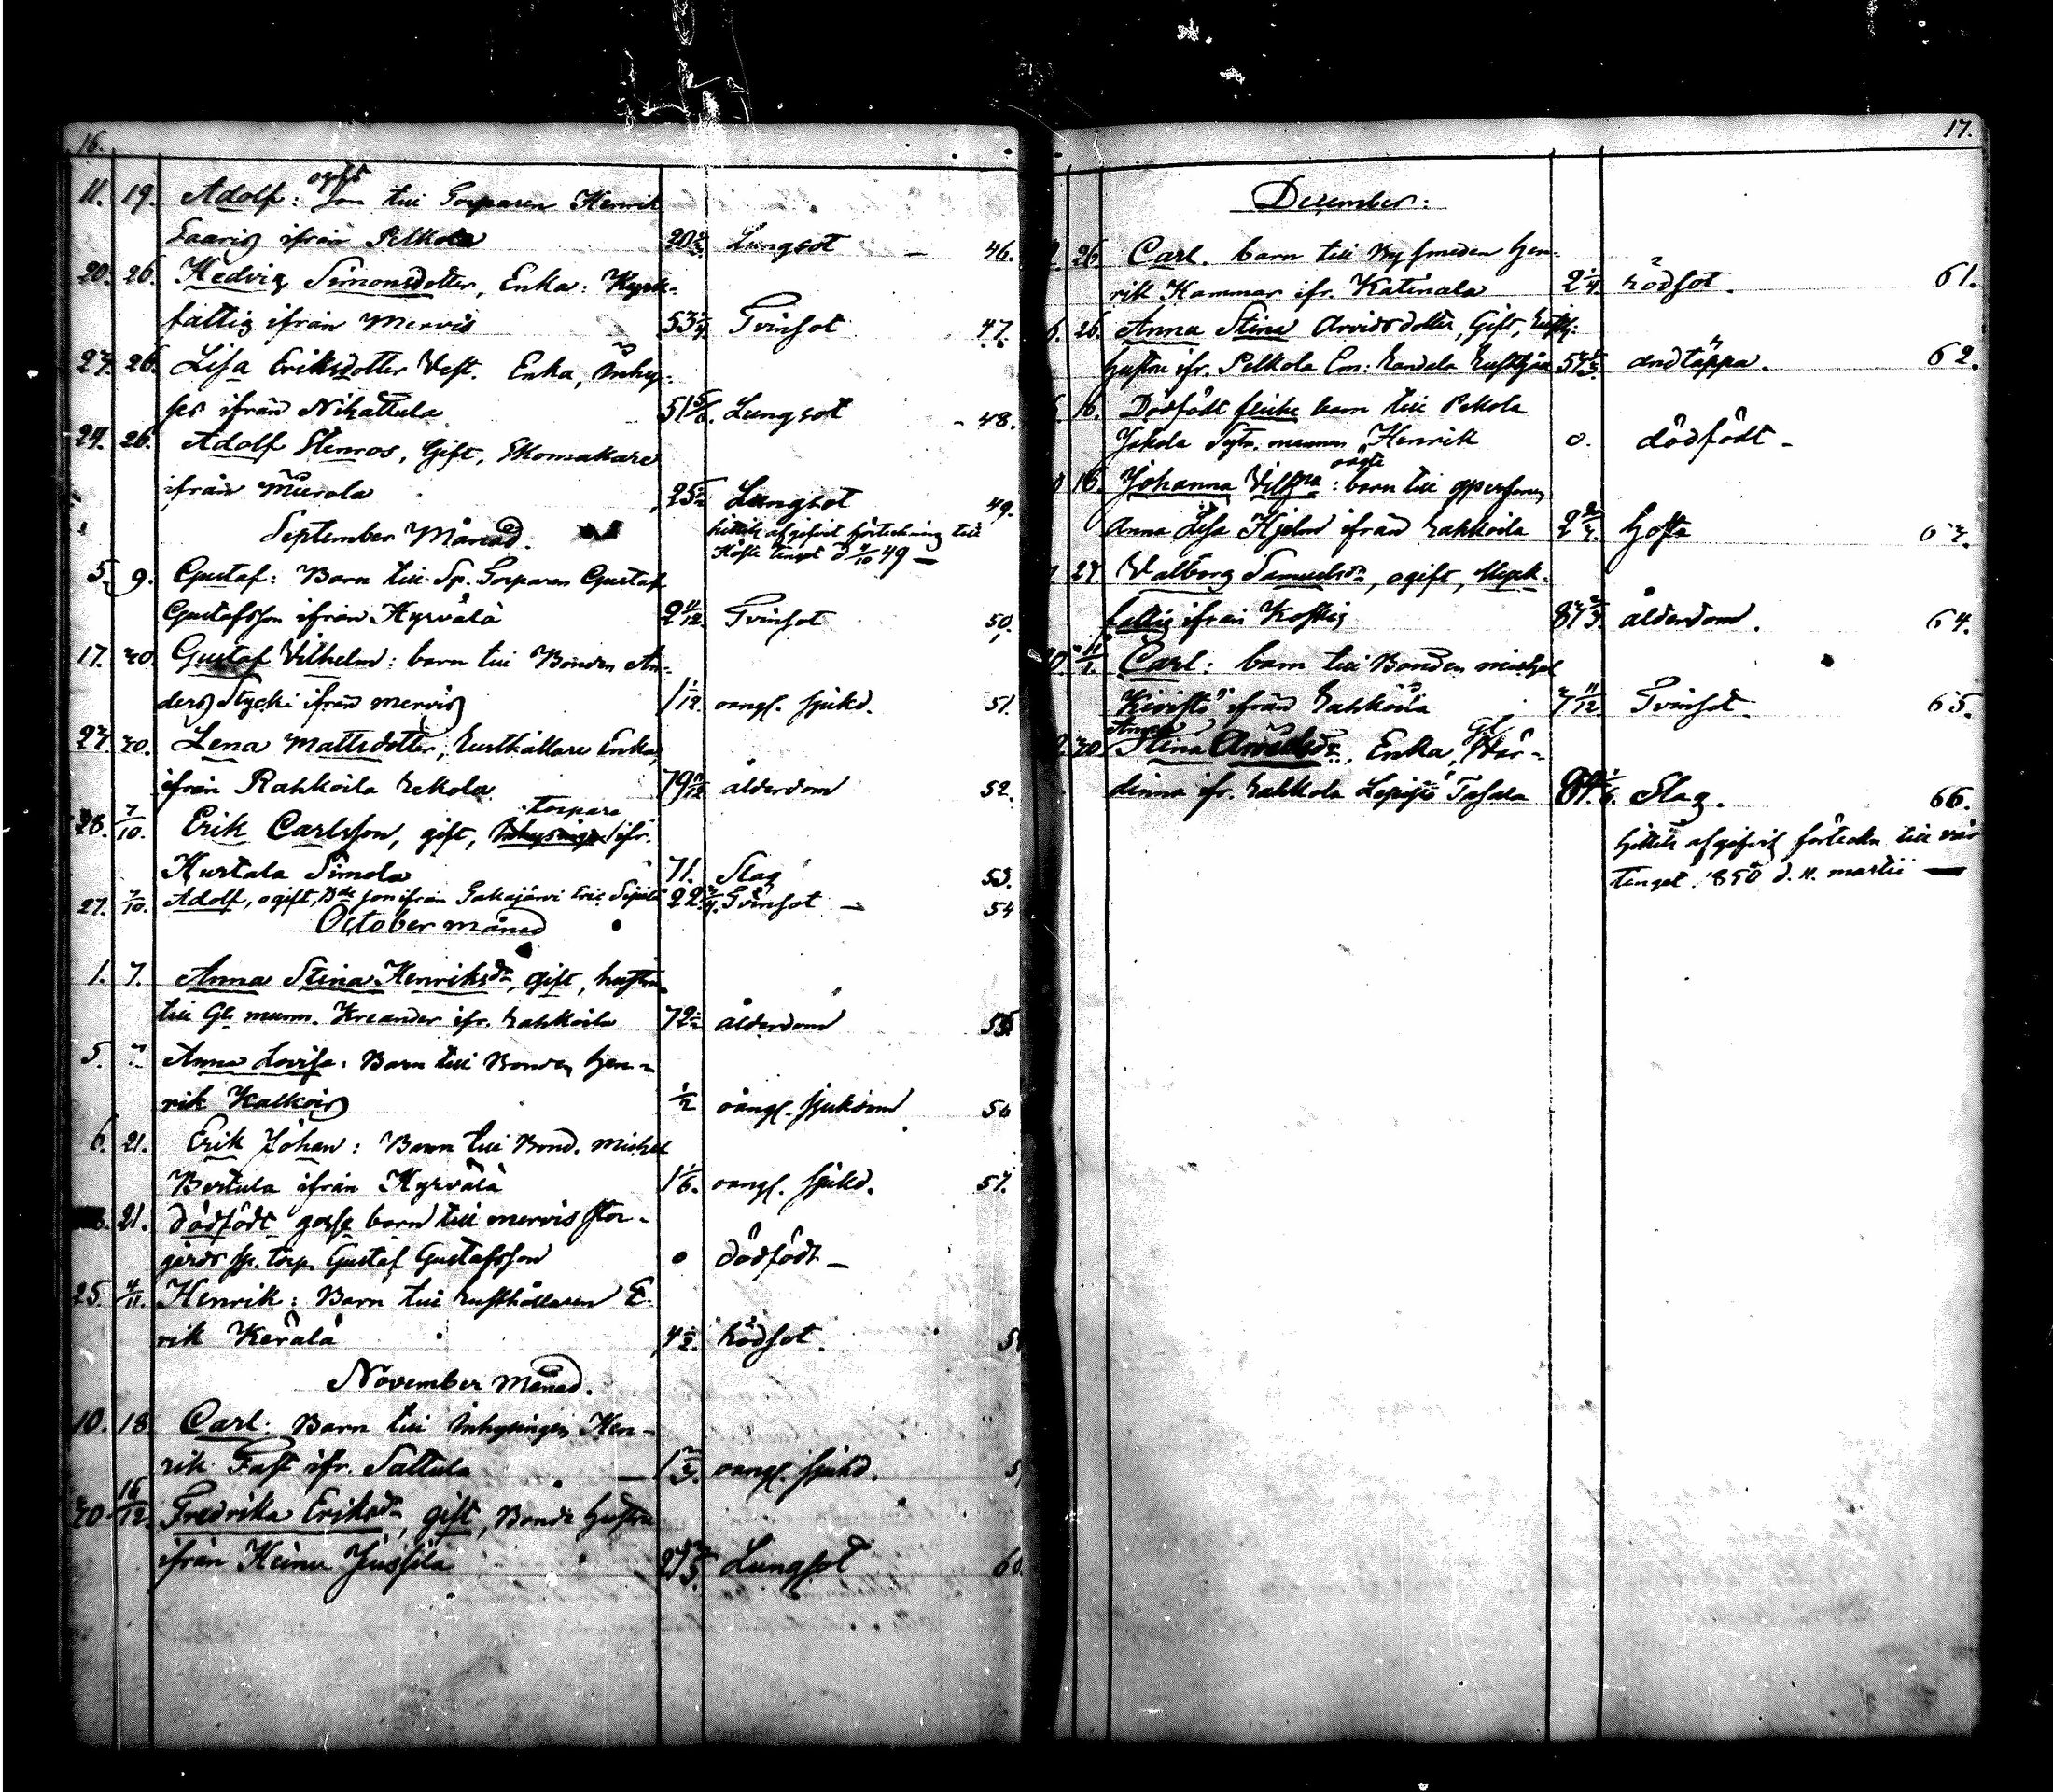 16.
11. 19. Adolf: ogift Son till Torparen Henrik
Saaris ifrån Pelkola 20 Lungsot - 46.
20. 26. Hedvig Simonsdotter, Enka: Kyrk-
fattig ifrån Mervis 53 Tvinsot 47.
27. 26. Lisa Eriksdotter Vest. Enka, Inhy-
ses ifrån Nihattula 51 5/6. Lungsot - 48.
24. 26. Adolf Stenros, Gift, Skomakare
ifrån Murola 25 Lungsot 49.
hittils afgifvit förteckning till
Höste tinget d 49 -
September Månad.
5. 9. Gustaf: Barn till Sp. Torparen Gustaf
Gustafsson ifrån Hyrvälä 2 Tvinsot 50.
17. 30. Gustaf Vilhelm: barn till Bonden An-
ders Stycki ifrån Mervis 1 1/12 oangf. sjukd. 51.
27. 30. Lena Mattsdotter, Rusthållare Enka,
ifrån Rahkoila Eekola 79 ålderdom 52.
28. 7/10. Erik Carlsson, gift, Torpare ifr.
Kurtala Simola 71. Slag 53.
27. 7/10. Adolf, ogift, Bde son ifrån Takajärvi Eric Sipilä 22 Tvinsot - 54
October månad
1. 7. Anna Stina Henriksdr, gift, hustru
till Gl. murm. Kreander ifr. Rahkoila 72 ålderdom 55.
5. Anna Lovisa: Barn till Bonden Hen-
rik Kalkois 1/2 oangf. sjukdom 56
6. 21. Erik Johan: Barn till Bond. Michel
Bertula ifrån Hyrvälä 1 1/6. oangf. sjukd. 57.
21. dödfödt gosse barn till mervis Stor-
gårds sp. torp. Gustaf Gustafsson 0 dödfödt -
25. 4/11. Henrik: Barn till Rusthållaren E-
rik Kerälä 4 1/2. Rödsot.
November Månad.
10. 18 Carl: Barn till Inhysingen Hen-
rik Fast ifr. Sattula - 1 oangf. sjukd.
30. 16/12. Fredrika Eriksdr, gift, Bonde hustru
ifrån Heinu Jussila 27 Lungsot 60
17.
December:
26. Carl. barn till Bysmeden Hen-
rik Hammar ifr. Katinala 2 1/4. Rödsot. 61.
26. Anna Stina Arvidsdotter, Gift, Rusth:
hustru ifr. Pelkola Em: Randala andtäppa. 62.
16. Dödfödt flicke barn till Pelkola
Jakola Sytn. mannen Henrik 0. dödfödt -
16. Johanna Vilhma: oägta barn till qpersonen
Anna Lisa Hjelm ifrån Rahkoila 2 Hosta 63.
27 Valborg Samuelsdr, ogift, Kyrk-
fattig ifrån Koskis 87 ålderdom. 64.
11/1. Carl: barn till Bonden michel
Kivistö ifrån Rahkoila 7 11/12. Tvinsot. 65.
30 Anna Stina Arvidsdr. Enka, Gl. Vär-
dinna ifr. Rahkola Tafala 81 1/6. Slag. 66.
hittils afgifvit förteckn till vår
Tinget 1850 d. 11. martii -